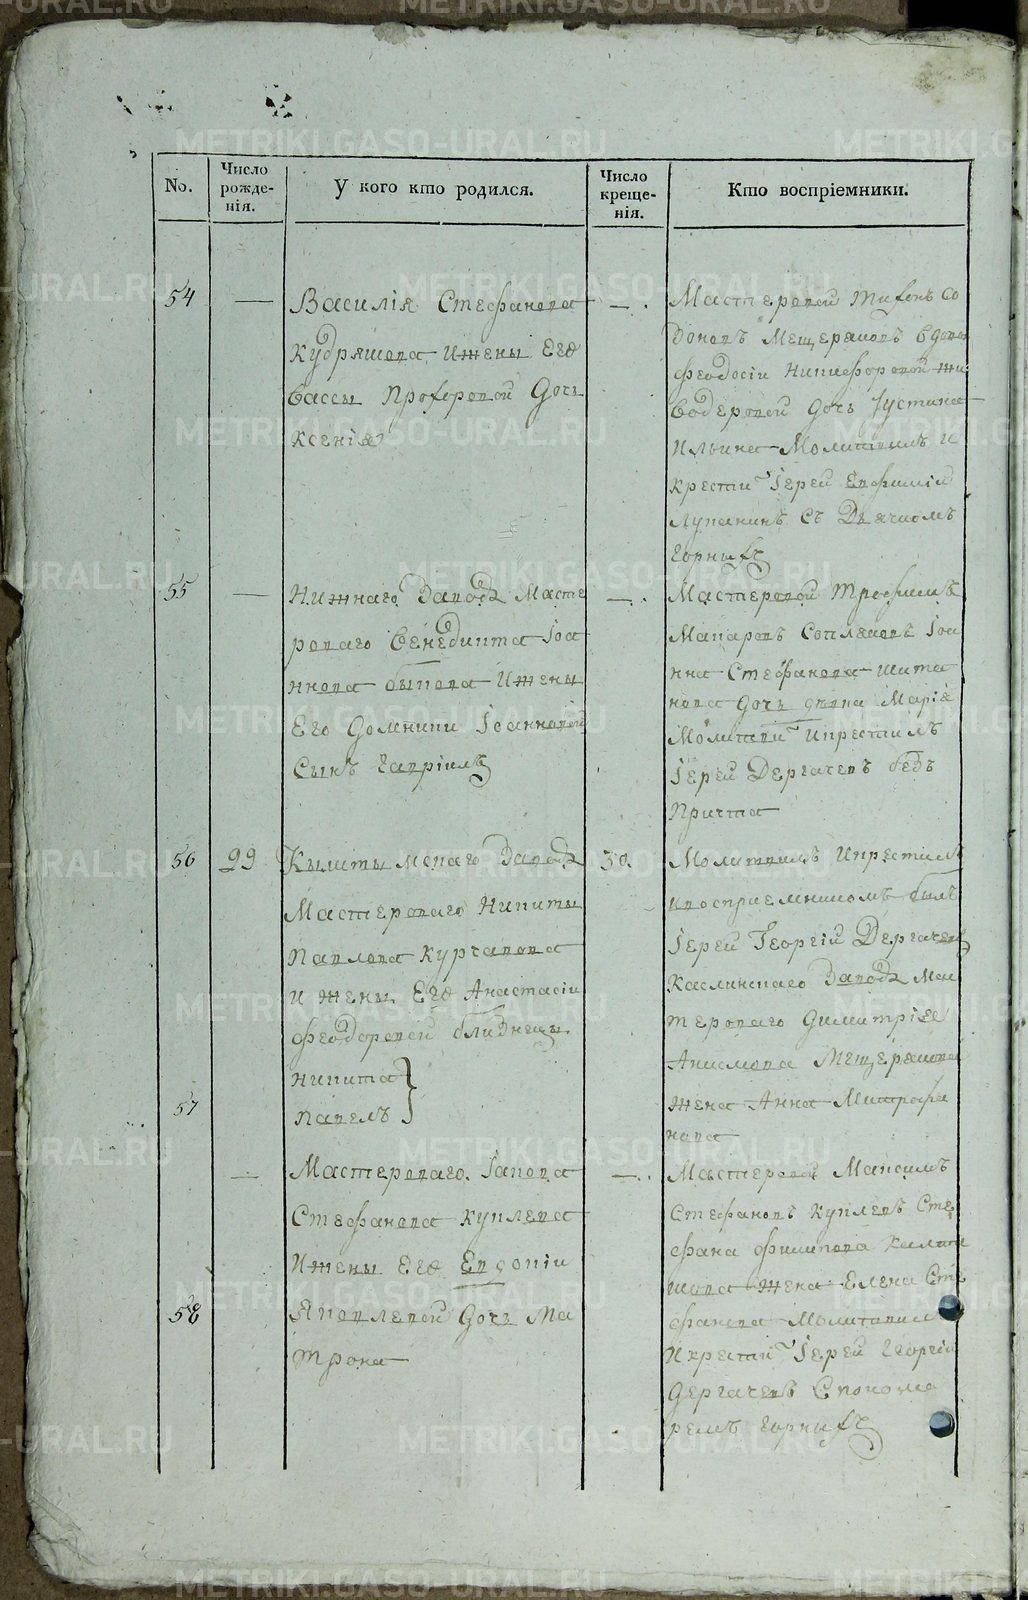 No.
Число рожде-
нія.
У кого кто родился.
Число креще-
нія.
Кто воспріемники.
54
—
Василія Стефанова
Кудряшова и жены Его
Вассы Прохоровой дочь
Ксенія
—
Мастеровой
Мещеряковъ вдова
Феодосіи Никифоровой
дочь Іустина
Ильина Молитвилъ и
крести Іерей Евфимій
Лупанинъ съ Дьячкомъ
Горныхъ
55
—
Нижнаго Завода Масте
роваго Венедикта Іоа
ннова Быкова и жены
Его Домники Іоанновой
Сынъ Гавріилъ
—
Мастеровой Трофимъ
Макаровъ Іоа
нна Стефанова Шита
нова дочь девка Маріе
Молитви и крестилъ
Іерей Дергачевъ безъ
Причта
56
29
Кыштымскаго Завода
Мастероваго Никиты
Павлова Курчавова
и жены Его Анастасіи
Феодоровой близнецы
Никита
57
Павелъ
30
Молитвилъ и крестилъ
и восприемникомъ былъ
Іерей Георгій Дергачевъ
Каслинскаго Завода Мас
тероваго Димитріе
Анисмова Мещерякова
жена Анна Митрофа
нова
—
Мастероваго Іакова
Стефанова Куклева
и жены Его Евдокіи
58
Яковлевой дочь Ма
трона
—
Мастеровой Максимъ
Стефановъ Куклевъ Сте
фана Филипова
жена Елена Сте
фанова Молитвилъ
и крести Іерей Георгій
Дергачевъ Спонома
ремъ Горныхъ
METRIKI.GASO-URAL.RU